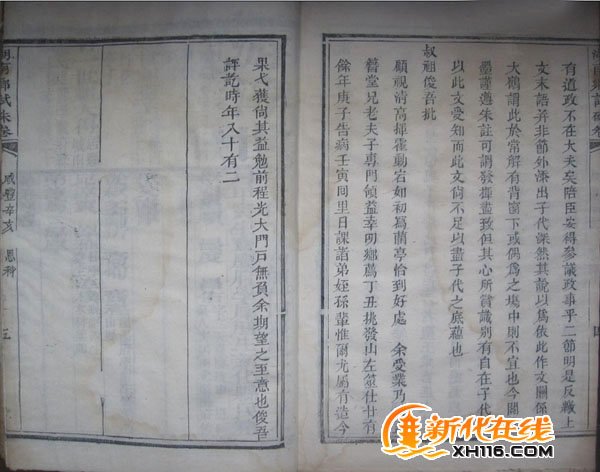 有道政不在大夫矣陪臣妄得參議政事乎二節明是反繳上
文末語并非節外添出子代深然其說以爲依此作文關係
大期謂此於常解有背窗下或偶爲之塲中則不宜也今閱
墨蒲遇朱註可謂發揮盡致但其心所嘗識別有自在子代
以此文受知而此文尚不足以盡子代之底蘊也
叔祖俊吾批
顧視清高揮霍動宕如初寫蘭亭恰到好處 余受業乃
兄老夫子專門傾益幸明鄉薦丁丑挑發山左筮仕廿有
餘年庚子告病壬寅同里日課諸弟姪孫輩惟爾尤屬有造今
果弋獲尙其益勉前程光大門戶無負余期望之至意也俊吾
評乾時年八十有二
咸豐辛亥 恩科
三
新化在线
XH116.COM